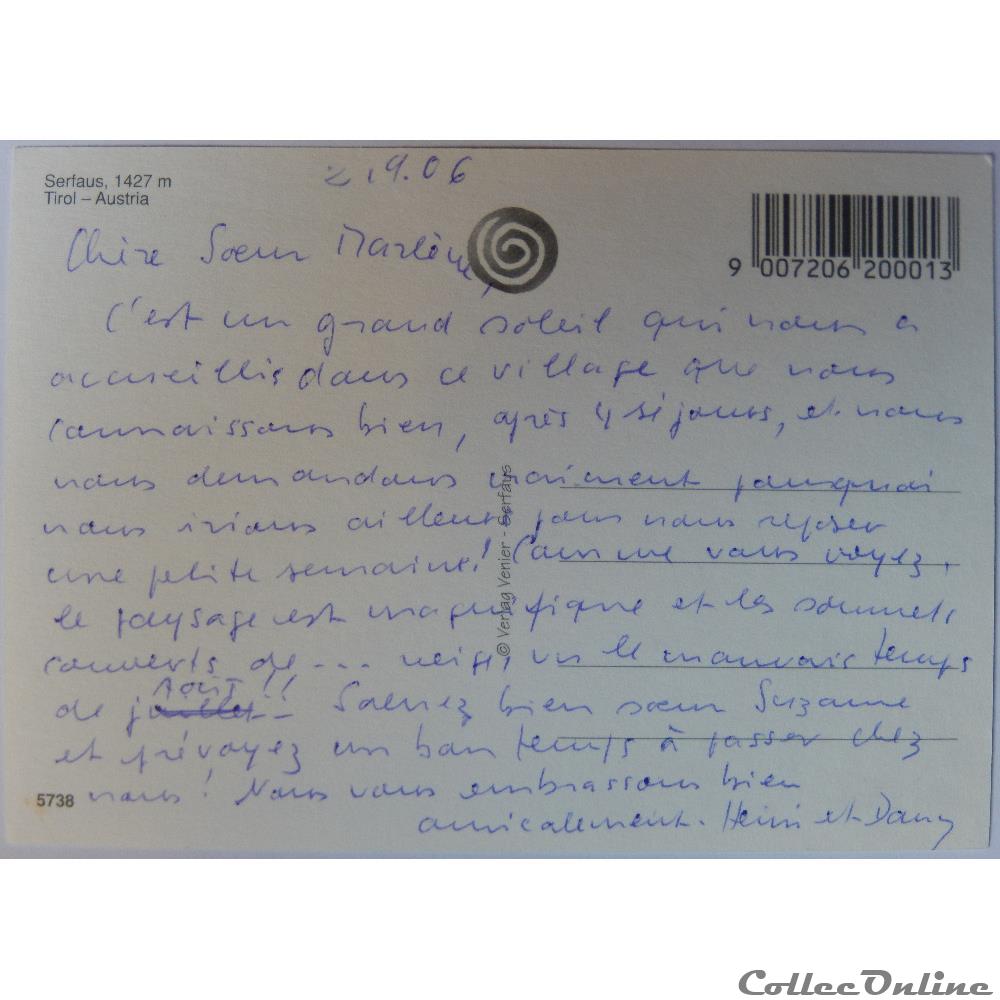 Serfaus, 1427 m
Tirol – Austria
2.9.06
9 007206 200013
Chère Sœur Marlène,
C'est un grand soleil qui nous a
accueillis dans ce village que nous
connaissons bien, après 4 séjours, et nous
nous demandons vraiment pourquoi
nous irions ailleurs pour nous reposer
une petite semaine! Comme vous voyez,
le paysage est magnifique et les sommets
couverts de ... neige, vu le mauvais temps
de juillet Août!! Saluez bien sœur Suzanne
et prévoyez un bon temps à passer chez
nous! Nous vous embrassons bien
amicalement. Henri et Dany
5738
© Verlag Venier - Serfaus
CollecOnline